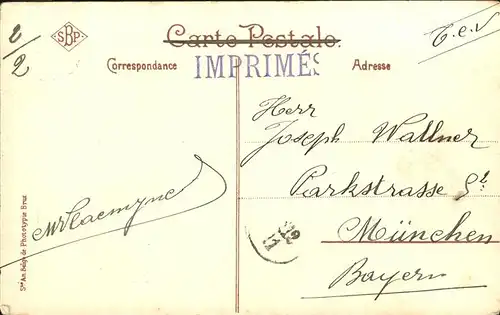 2/2
SBP
Carte Postale.
T.c.v
Correspondance
IMPRIMÉS
Adresse
Herr
Joseph Wallner
Parkstrasse
München
Bayern
Ste An. Belge de Phototypie Brux